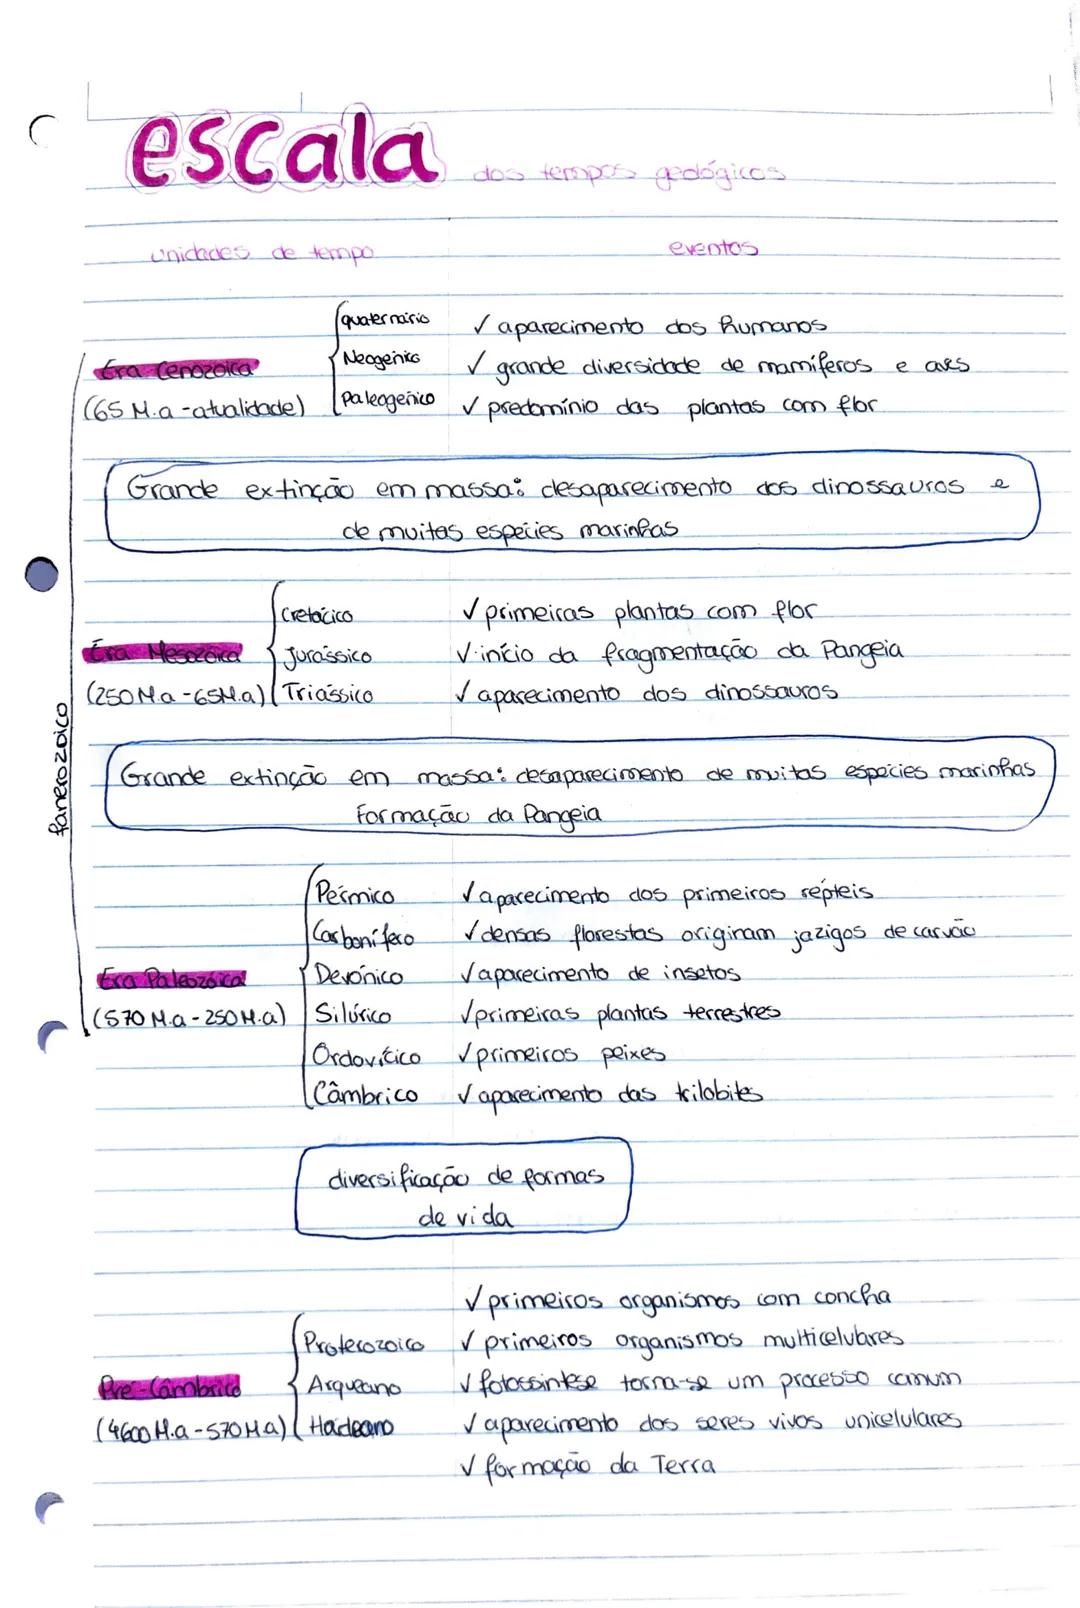 escala dos tempos geológicos
unidades de tempo eventos
quaternário ✓ aparecimento dos humanos
Era Cenozoica Neogénico ✓ grande diversidade de mamíferos e aves
(65 M.a - atualidade) Paleogénico ✓ predomínio das plantas com flor
Grande extinção em massa: desaparecimento dos dinossauros e
de muitas espécies marinhas
Cretácico ✓ primeiras plantas com flor
Era Mesozóica Jurássico ✓ início da fragmentação da Pangeia
(250 M.a - 65M.a) Triássico ✓ aparecimento dos dinossauros
fanerozoico
Grande extinção em massa: desaparecimento de muitas espécies marinhas
Formação da Pangeia
Pérmico ✓ aparecimento dos primeiros répteis
Carbonífero ✓ densas florestas originam jazigos de carvão
Era Paleozóica Devónico ✓ aparecimento de insetos
(570 M.a - 250 M.a) Silúrico ✓ primeiras plantas terrestres
Ordovícico ✓ primeiros peixes
Câmbrico ✓ aparecimento das trilobites
diversificação de formas
de vida
✓ primeiros organismos com concha
Proterozoico ✓ primeiros organismos multicelulares
Pré-Câmbrico Arqueano ✓ fotossíntese torna-se um processo comum
(4600 M.a - 570 M.a) Hadeano ✓ aparecimento dos seres vivos unicelulares
✓ formação da Terra